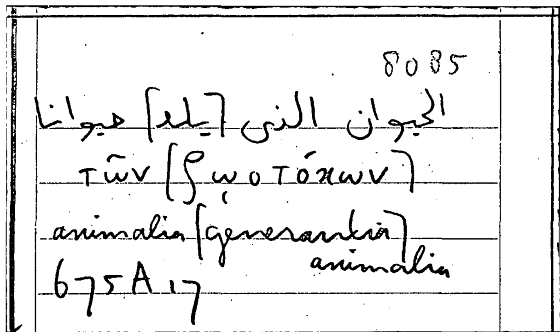 8085
الحيوان الذى [يلد] حيوانا
τῶν [ζῳοτόκων]
animalia [generantia]
animalia
675A 17